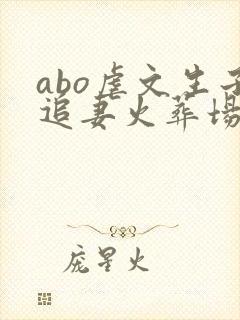 abo虐文生子
追妻火葬场
庞星火